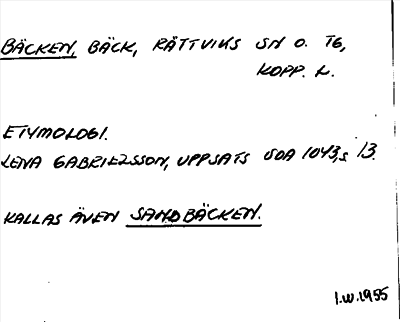 BÄCKEN, BÄCK, RÄTTVIKS SN O. TG,
KOPP. L.
ETYMOLOGI.
LENA GABRIELSSON, UPPSATS SOA 1043, S 13.
KALLAS ÄVEN SANDBÄCKEN.
I.W.1955